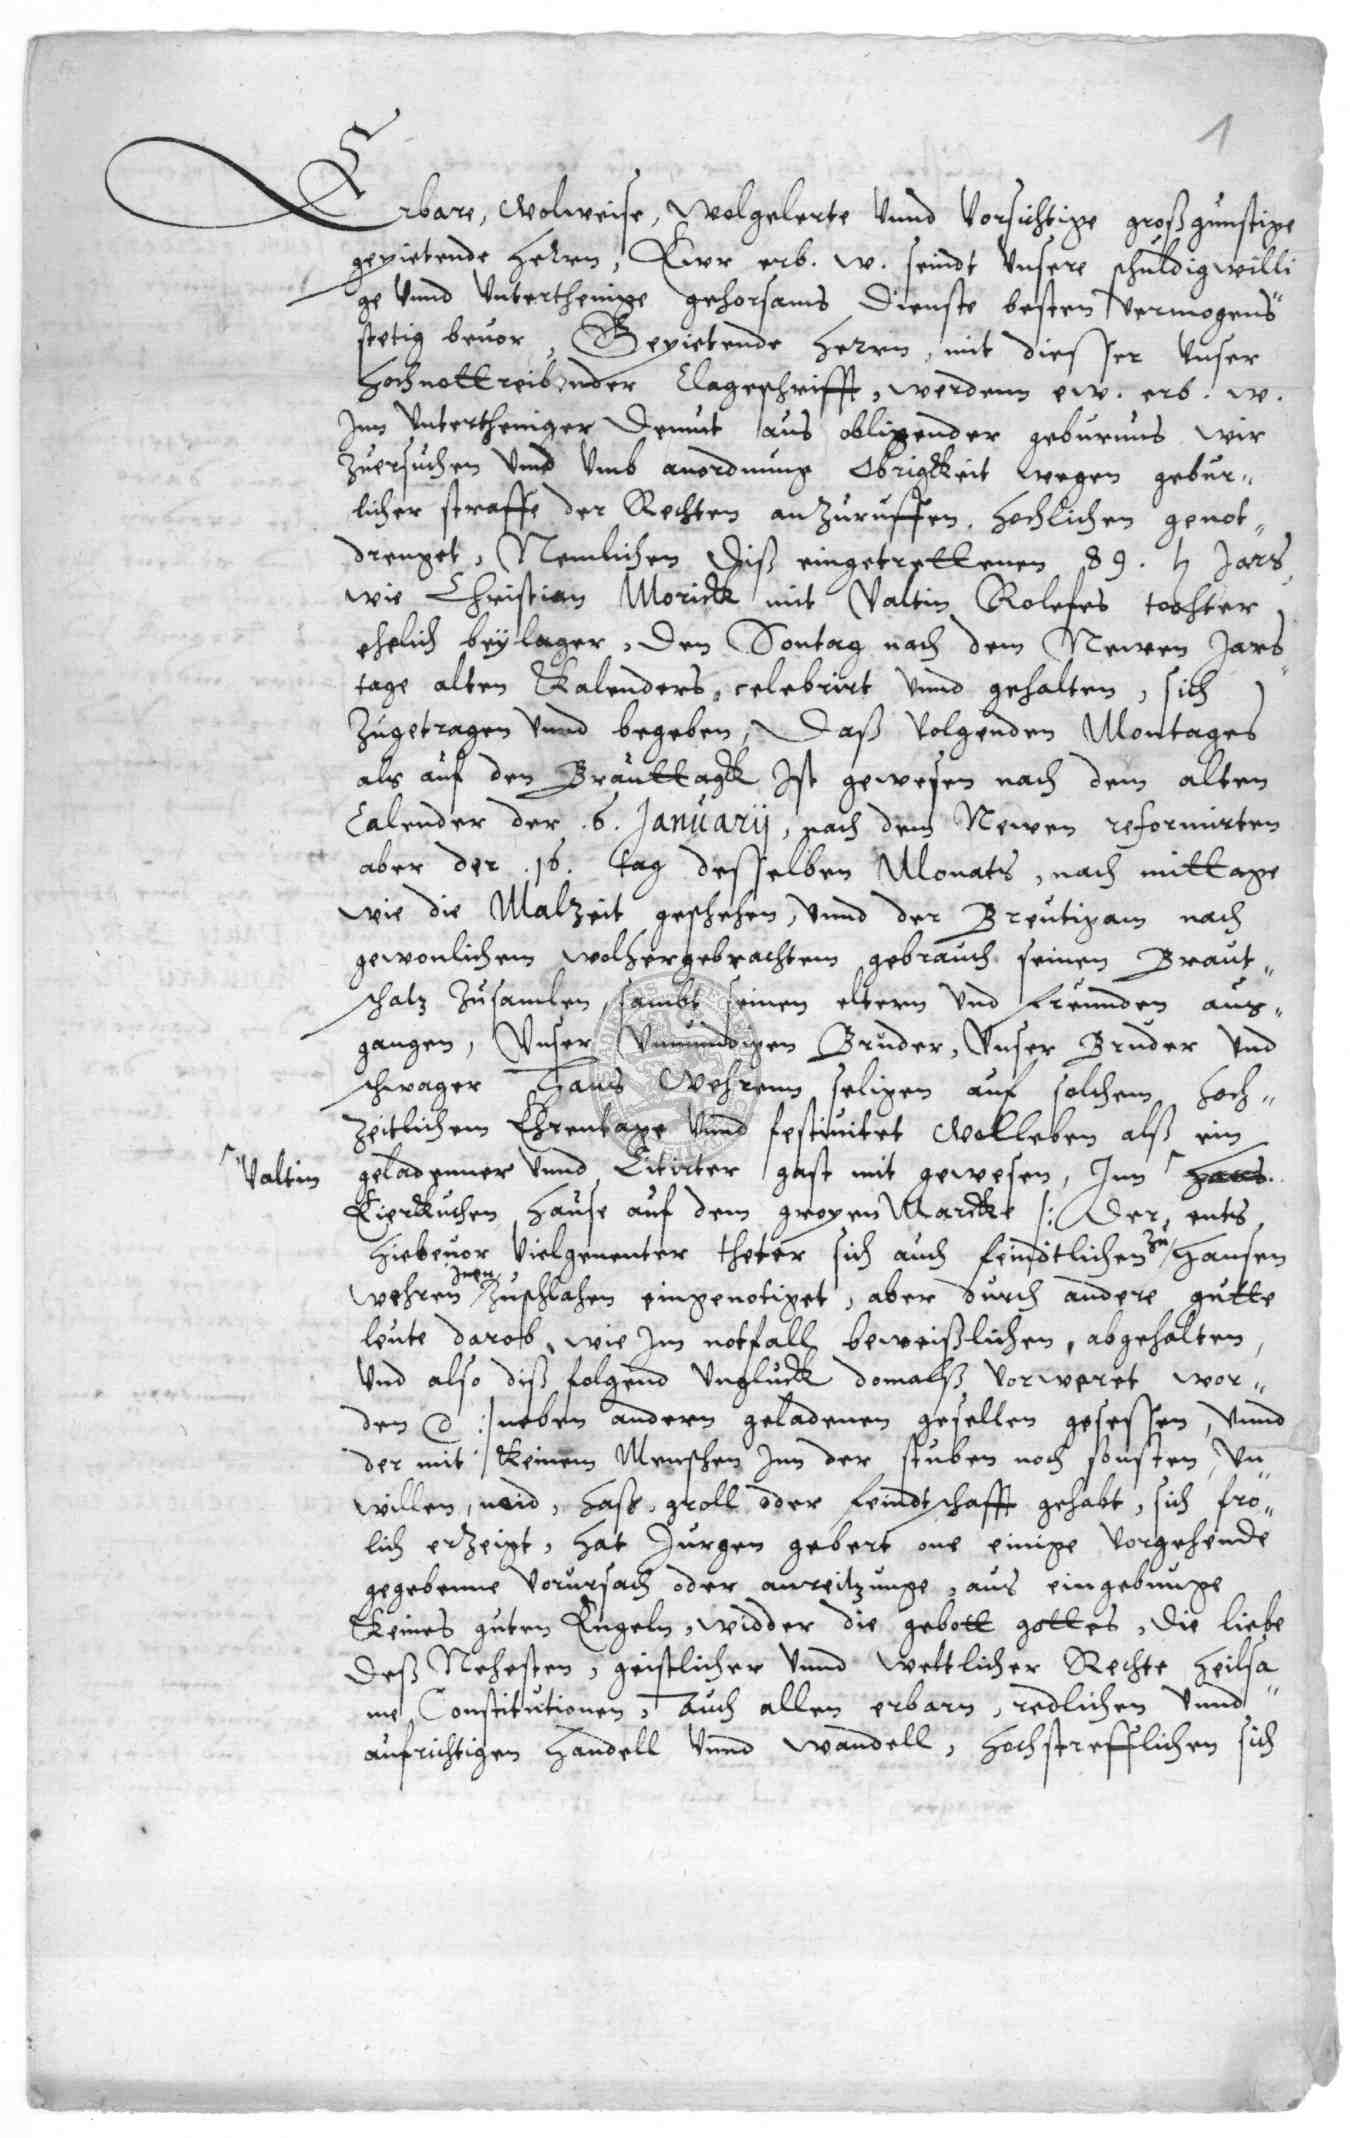 1
Erbare, Wolweise, Wolgelerte Vnnd Vorsichtige großgunstige
gepietende Herrn, Ewr erb. w. seindt Vnsere schuldigwilli
ge Vnnd Vnterthenige gehorsams Dienste besten vermogens
stetig beuor, Gepietende Herrn, mit diesser Vnser
Hochnottreibender Clageschrifft, werdenn ew. erb. w.
Inn Vntertheniger Demut aus obligender geburnus wir
Zuersuchen Vnnd Vmb anordnung Obrigkeit wegen gebur„
licher straffe der Rechten anzuruffen, Hochlichen genot„
drenget, Nemlichen Diß eingetrettenen 89. Jars,
wie Christian Morickk mit Valtin Rolefes tochter
ehelich beylager, Den Sontag nach dem Newen Jars„
tage alten Kalenders, celebrirt Vnnd gehalten, sich
Zugetragen Vnnd begeben, Daß Volgenden Montages
als auf den Brauttagk Ist gewesen nach dem alten
Calender der .6. Januarij, nach dem Newen reformirten
aber der .16. tag desselben Monats, nach mittage
wie die Malzeit geschehen, Vnnd der Breutigam nach
gewonlichem wolhergebrachtem gebrauch seinen Braut„
schatz Zusamlen, sambt seinen eltern Vnd freunden aus„
gangen, Vnser Vnmundigen Bruder, Vnser Bruder Vnd
schwager Hans Wehrenn seligen auf solchem Hoch„
Zeitlichem Ehrentage Vnnd festiuitet Wolleben alß ein
Valtin
geladenner Vnnd Citirter gast mit gewesen, Inn Hans
Eierkuchen Hause auf dem gropen Marckte /: Der ents
Hiebeuor Vielgenenter theter sich auch feindtlichen zu Hansen
Wehren Inen Zuschlahen eingenotiget, aber durch andere gutte
leute darob, wie Im notfall beweißlichen, abgehalten,
Vnd also diß folgend Vngluck domalß Vorweret wor„
den :/ neben andern geladenen gesellen gesessen, Vnnd
der mit keinem Menschen Inn der stuben noch sonsten, Vn„
willen, neid, Haß, groll oder feindtschafft gehabt, sich fro„
lich erzeigt, Hat Jurgen gebert one einige Vorgehende
gegebenne Vorursach oder anreitzunge, aus eingebunge
keines guten Engeln, widder die gebott gottes, Die liebe
Deß Nehesten, geistlicher Vnnd weltlicher Rechte Heilsa„
me Constitutionen, Auch allen erbarn, redlichen Vnnd
aufrichtigen Handell Vnnd wandell, Hochstrefflichen sich